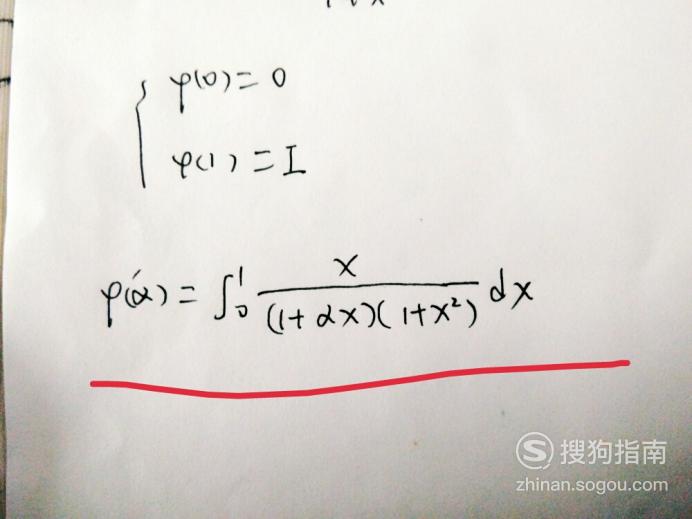 φ(0) = 0
φ(1) = I
φ'(α) = ∫₀¹ x / ((1+αx)(1+x²)) dx
S 搜狗指南
zhinan.sogou.com